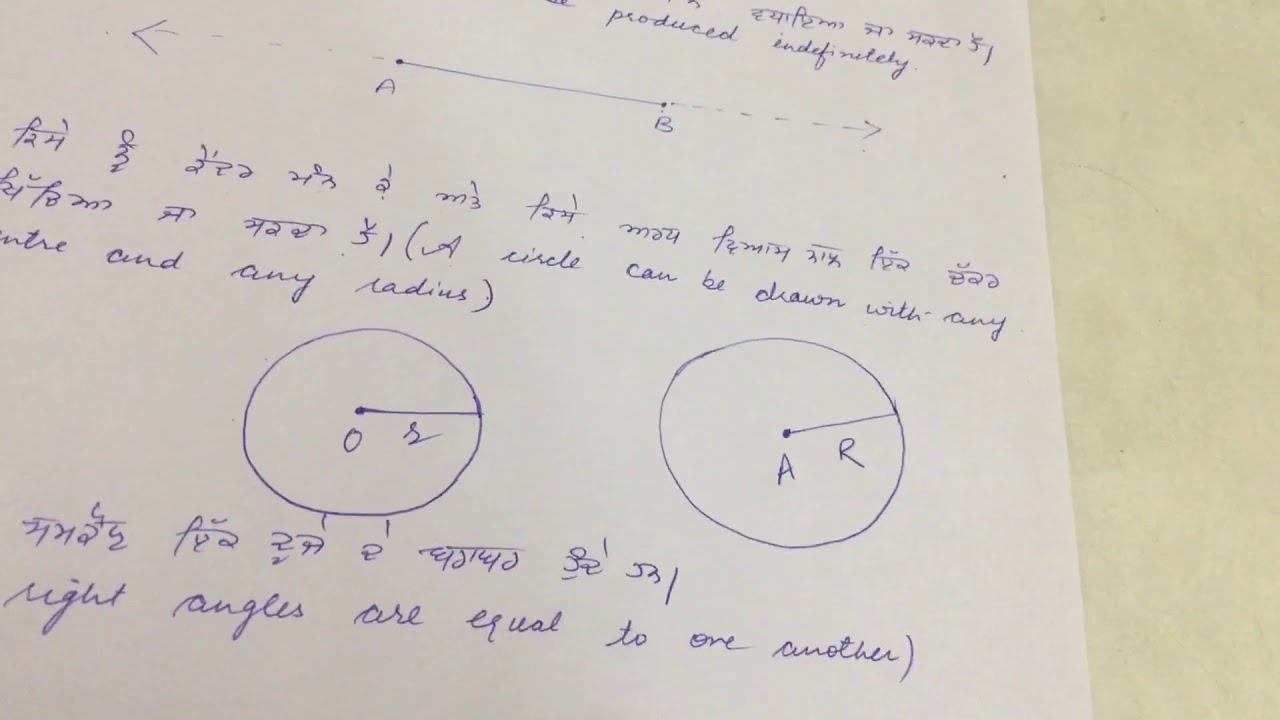 ਵਧਾਇਆ ਜਾ ਸਕਦਾ ਹੈ।
produced indefinitely.
A
B
ਕਿਸੇ ਨੂੰ ਕੇਂਦਰ ਮੰਨ ਕੇ ਅਤੇ ਕਿਸੇ ਅਰਧ ਵਿਆਸ ਨਾਲ ਇੱਕ ਚੱਕਰ
ਜਾ ਸਕਦਾ ਹੈ। (A circle can be drawn with any
and any radius)
O r
A R
ਸਮਕੋਣ ਇੱਕ ਦੂਜੇ ਦੇ ਬਰਾਬਰ ਹੁੰਦੇ ਹਨ।
right angles are equal to one another)